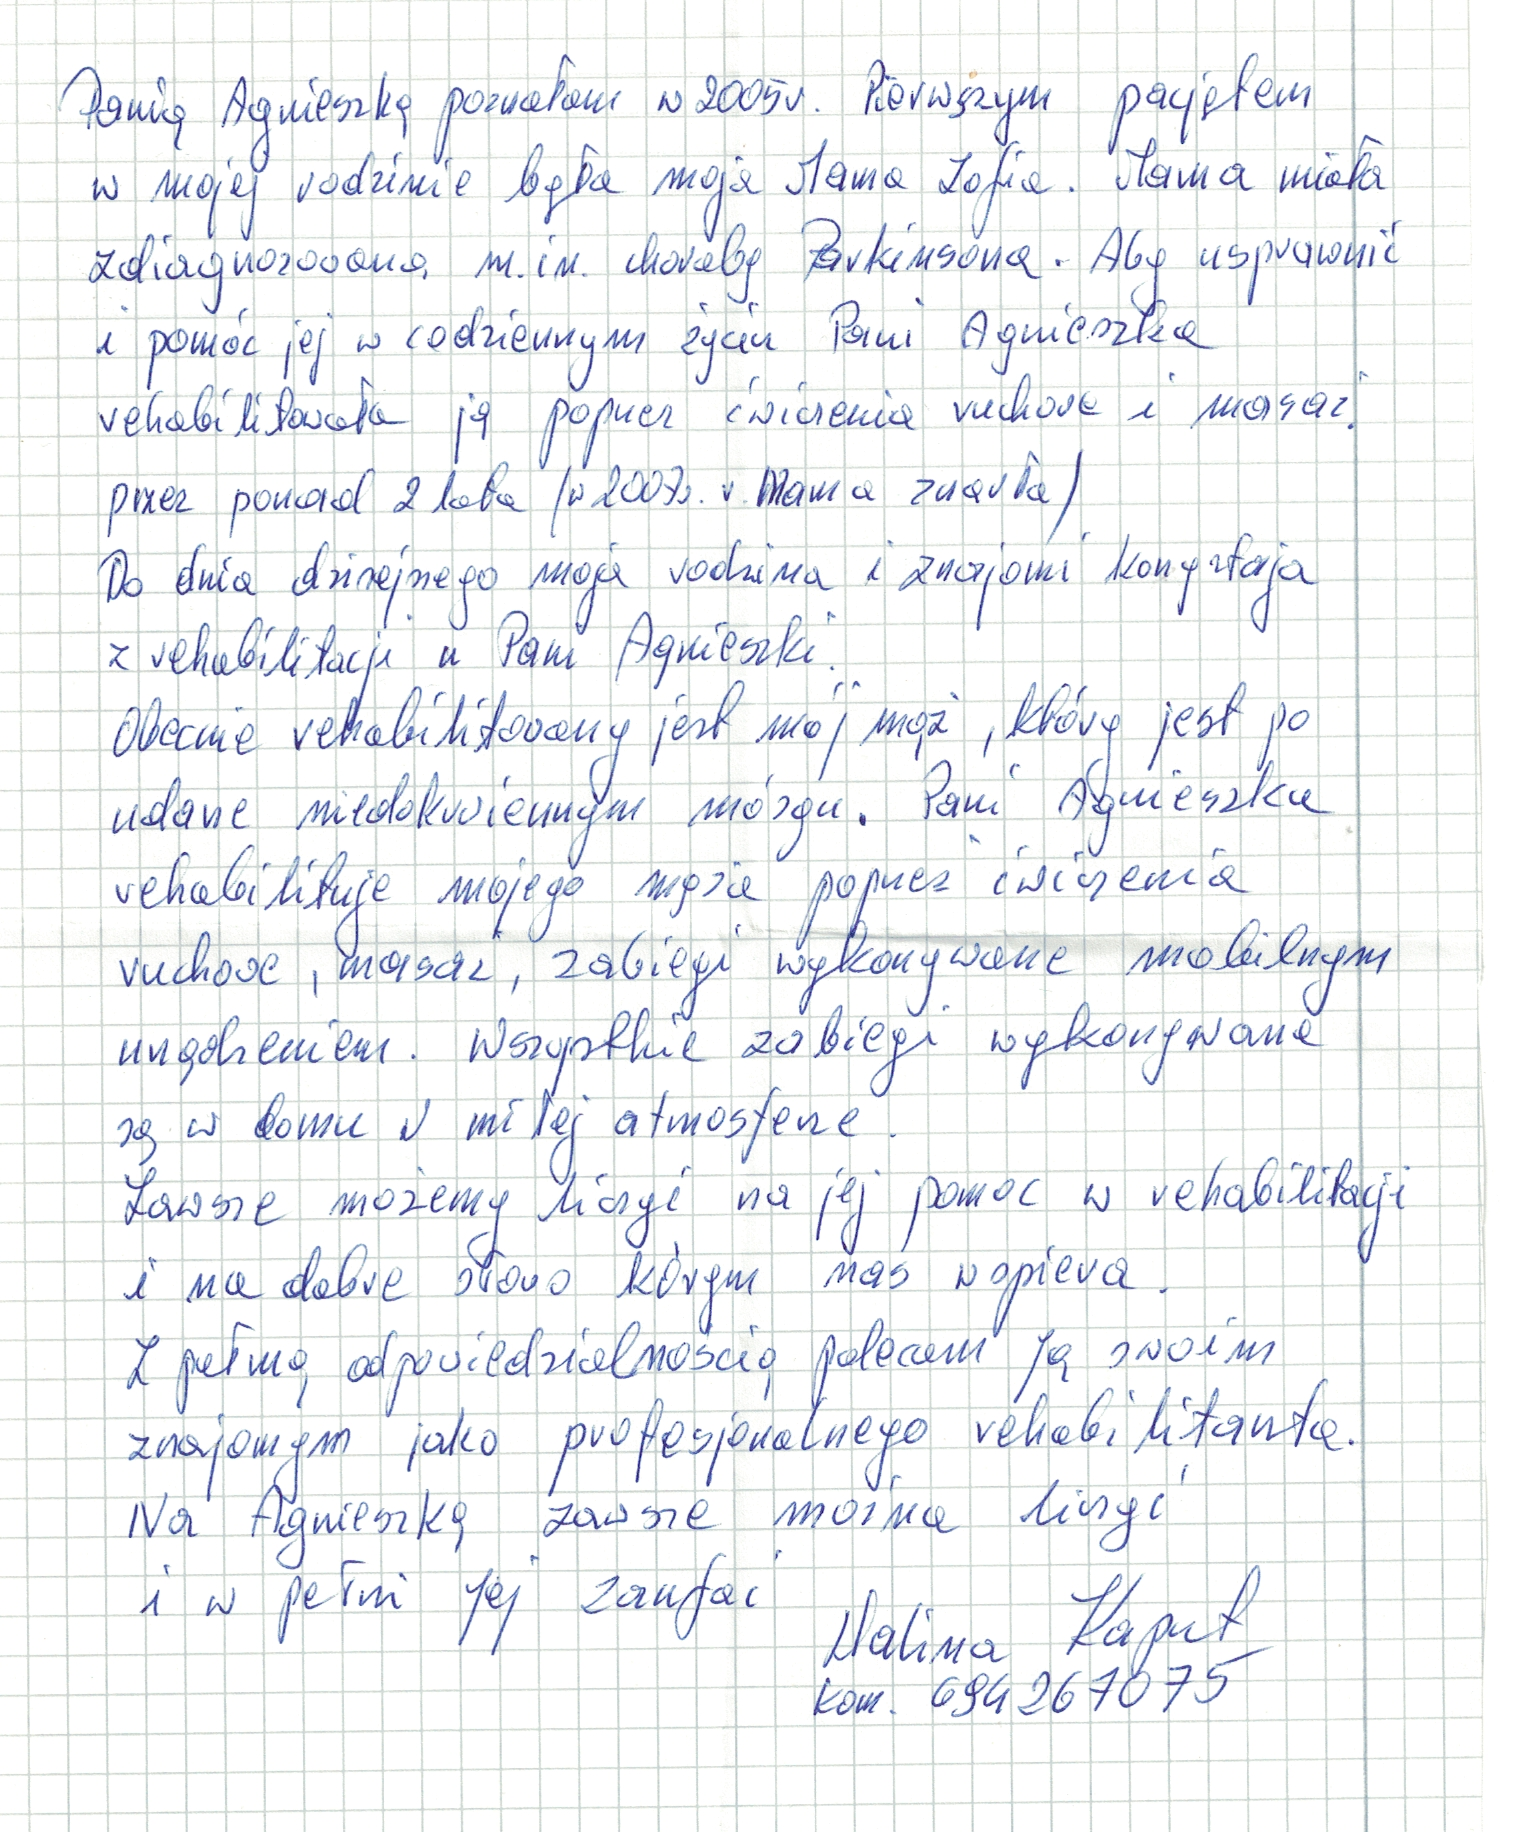 Panią Agnieszkę poznałam w 2005r. Pierwszym pacjętem
w mojej rodzinie była moja Mama Zofia. Mama miała
zdiagnozowaną m.in. chorobę Parkinsona. Aby usprawnić
i pomóc jej w codziennym życiu Pani Agnieszka
rehabilitowała ją poprzez ćwiczenia ruchowe i masaż.
przez ponad 2 lata /w 2007r. Mama zmarła/
Do dnia dzisiejszego moja rodzina i znajomi korzystają
z rehabilitacji u Pani Agnieszki.
Obecnie rehabilitowany jest mój mąż, który jest po
udarze niedokrwiennym mózgu. Pani Agnieszka
rehabilituje mojego męża poprzez ćwiczenia
ruchowe, masaż, zabiegi wykonywane mobilnym
urządzeniem. Wszystkie zabiegi wykonywane
są w domu w miłej atmosferze.
Zawsze możemy liczyć na jej pomoc w rehabilitacji
i na dobre słowo kórym nas wspiera.
Z pełną odpowiedzialnością polecam Ją swoim
znajomym jako profesjonalnego rehabilitanta.
Na Agnieszkę zawsze można liczyć
i w pełni Jej zaufać
Halina Kaput
kom. 694267075